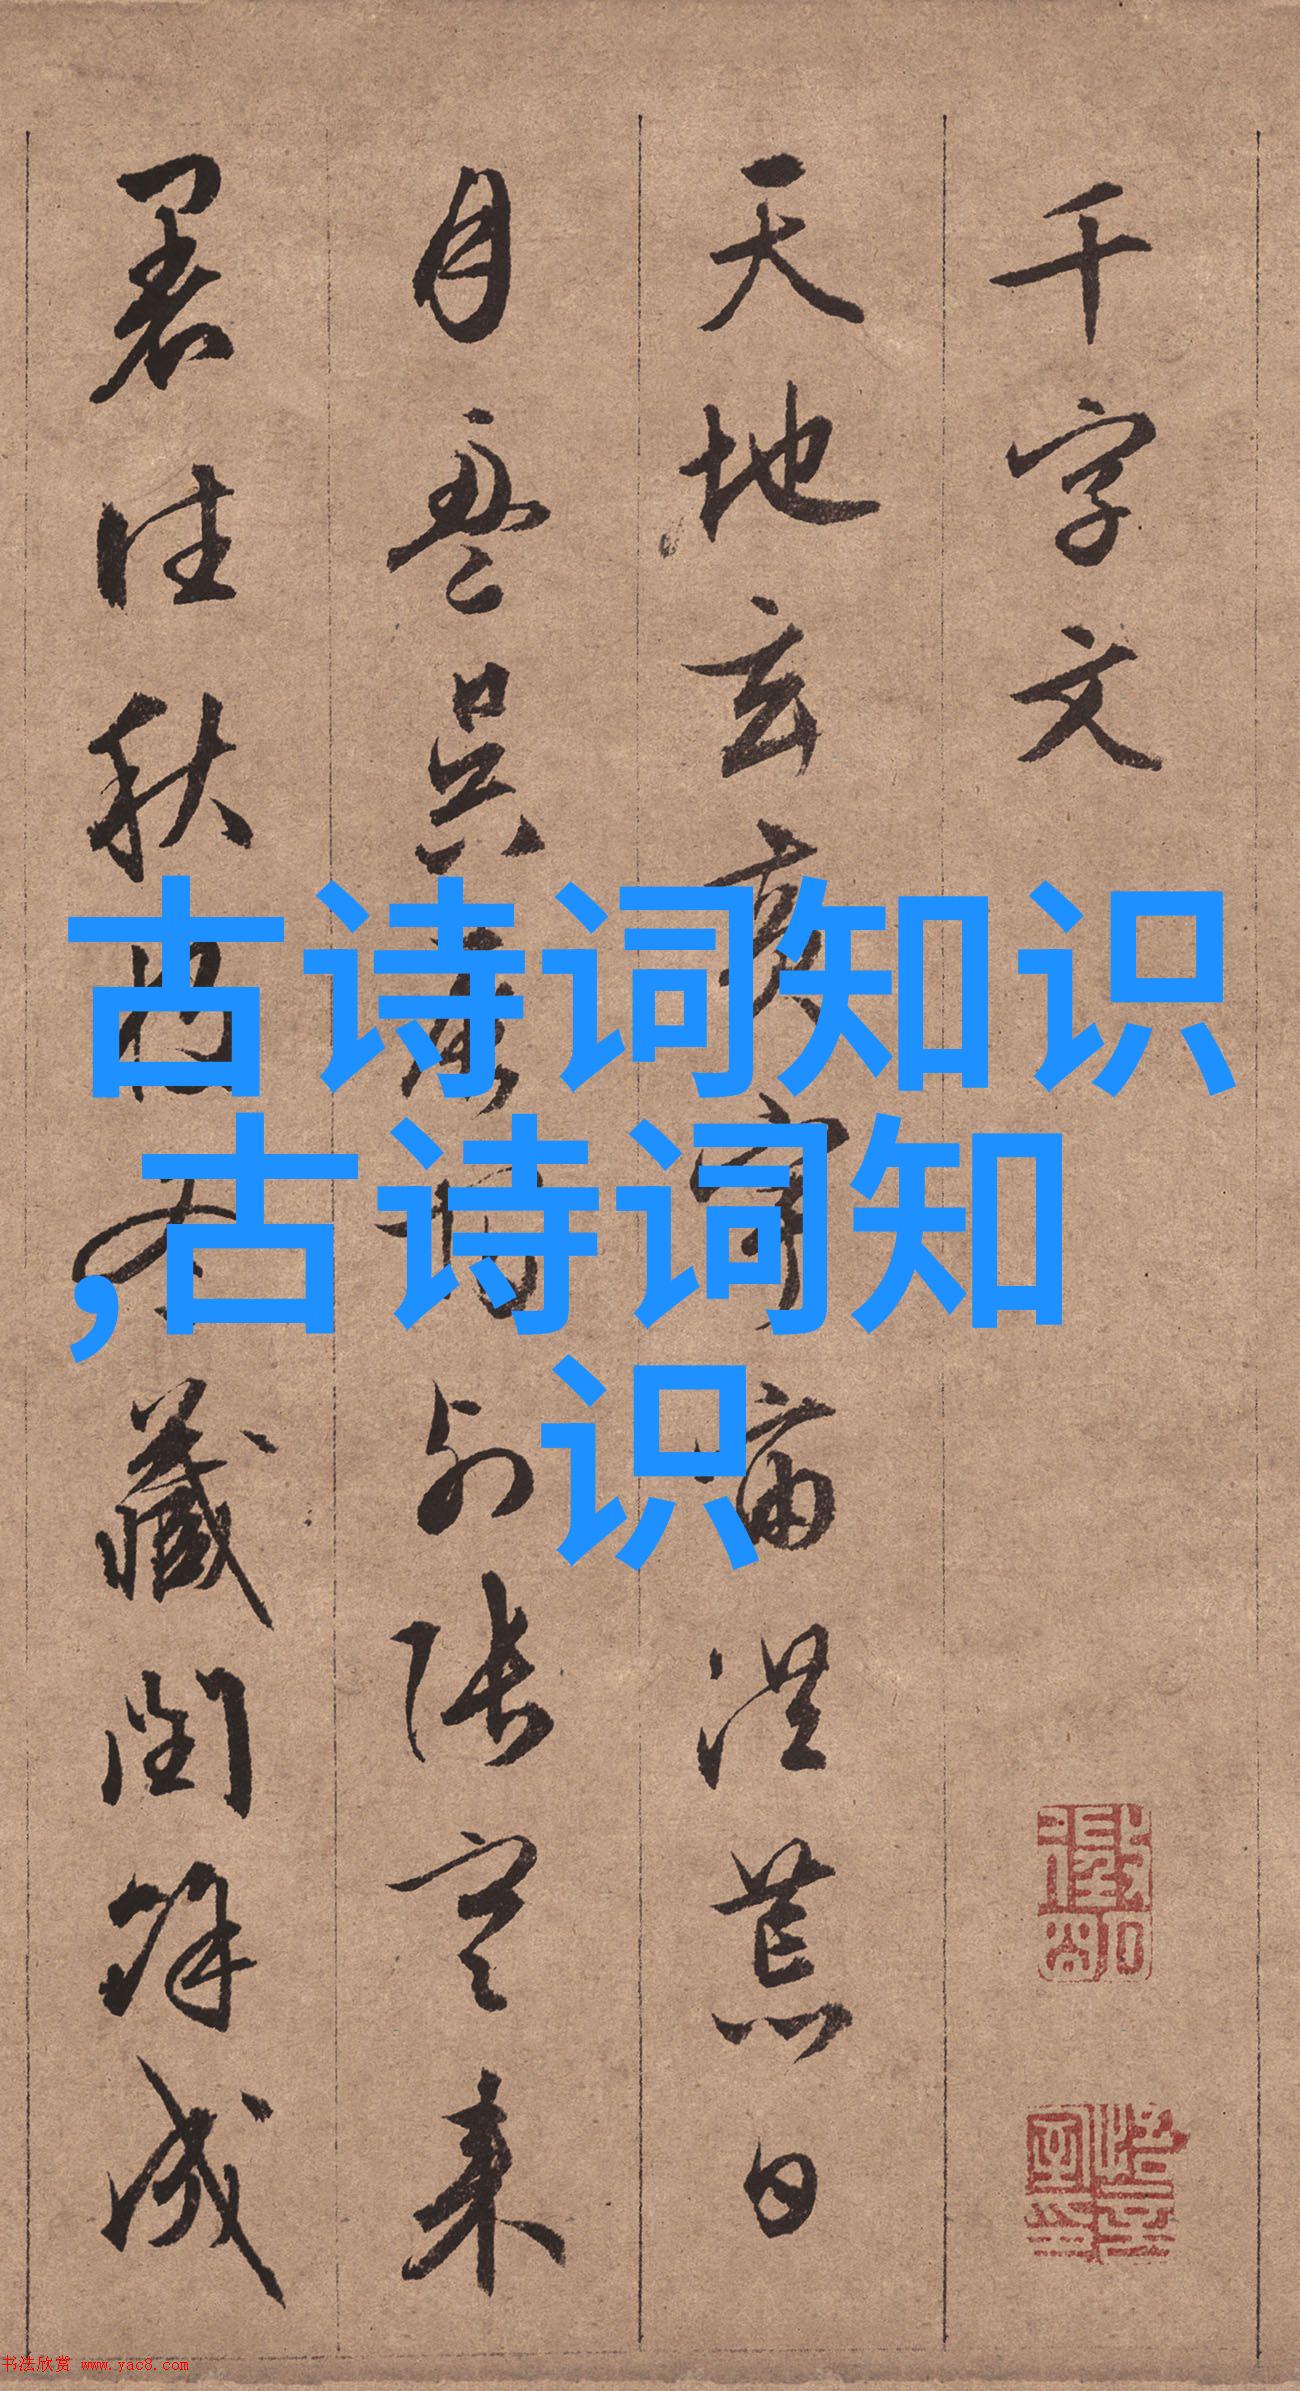 千字文
天地玄黄宇宙洪荒日
月盈昃辰宿列張寒来
暑往秋收冬藏閏餘成
古诗词知识
,古诗词知
识
书法欣赏 www.yac8.com